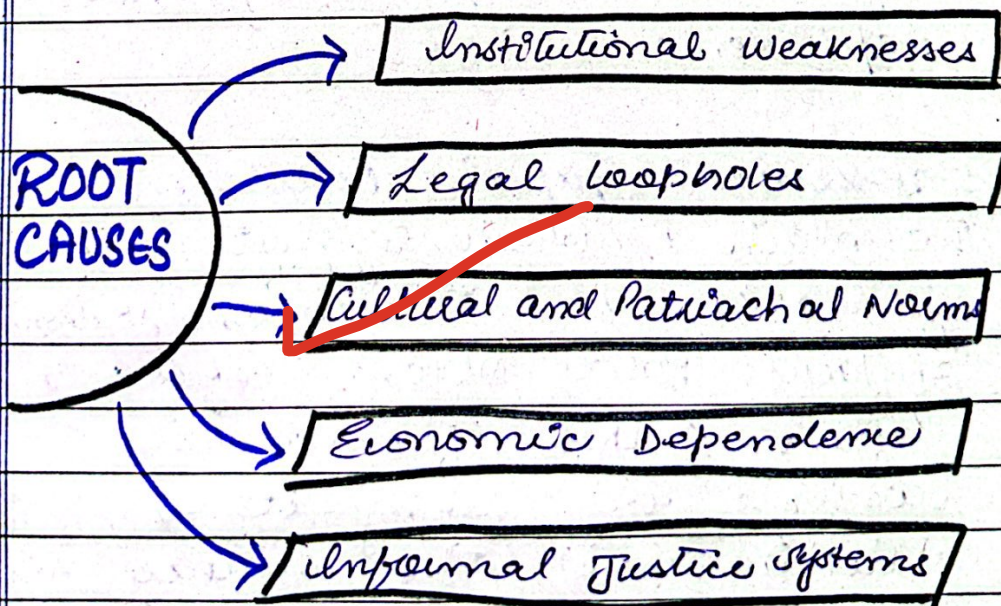 Institutional Weaknesses
ROOT
CAUSES
Legal loopholes
Cultural and Patriachal Norms
Economic Dependence
Informal Justice Systems